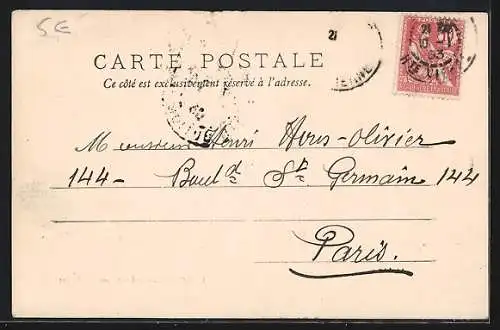 5€
CARTE POSTALE
Ce côté est exclusivement réservé à l'adresse.
Monsieur Henri Hous-Olivier
144 - Boul.d St Germain 144
Paris.